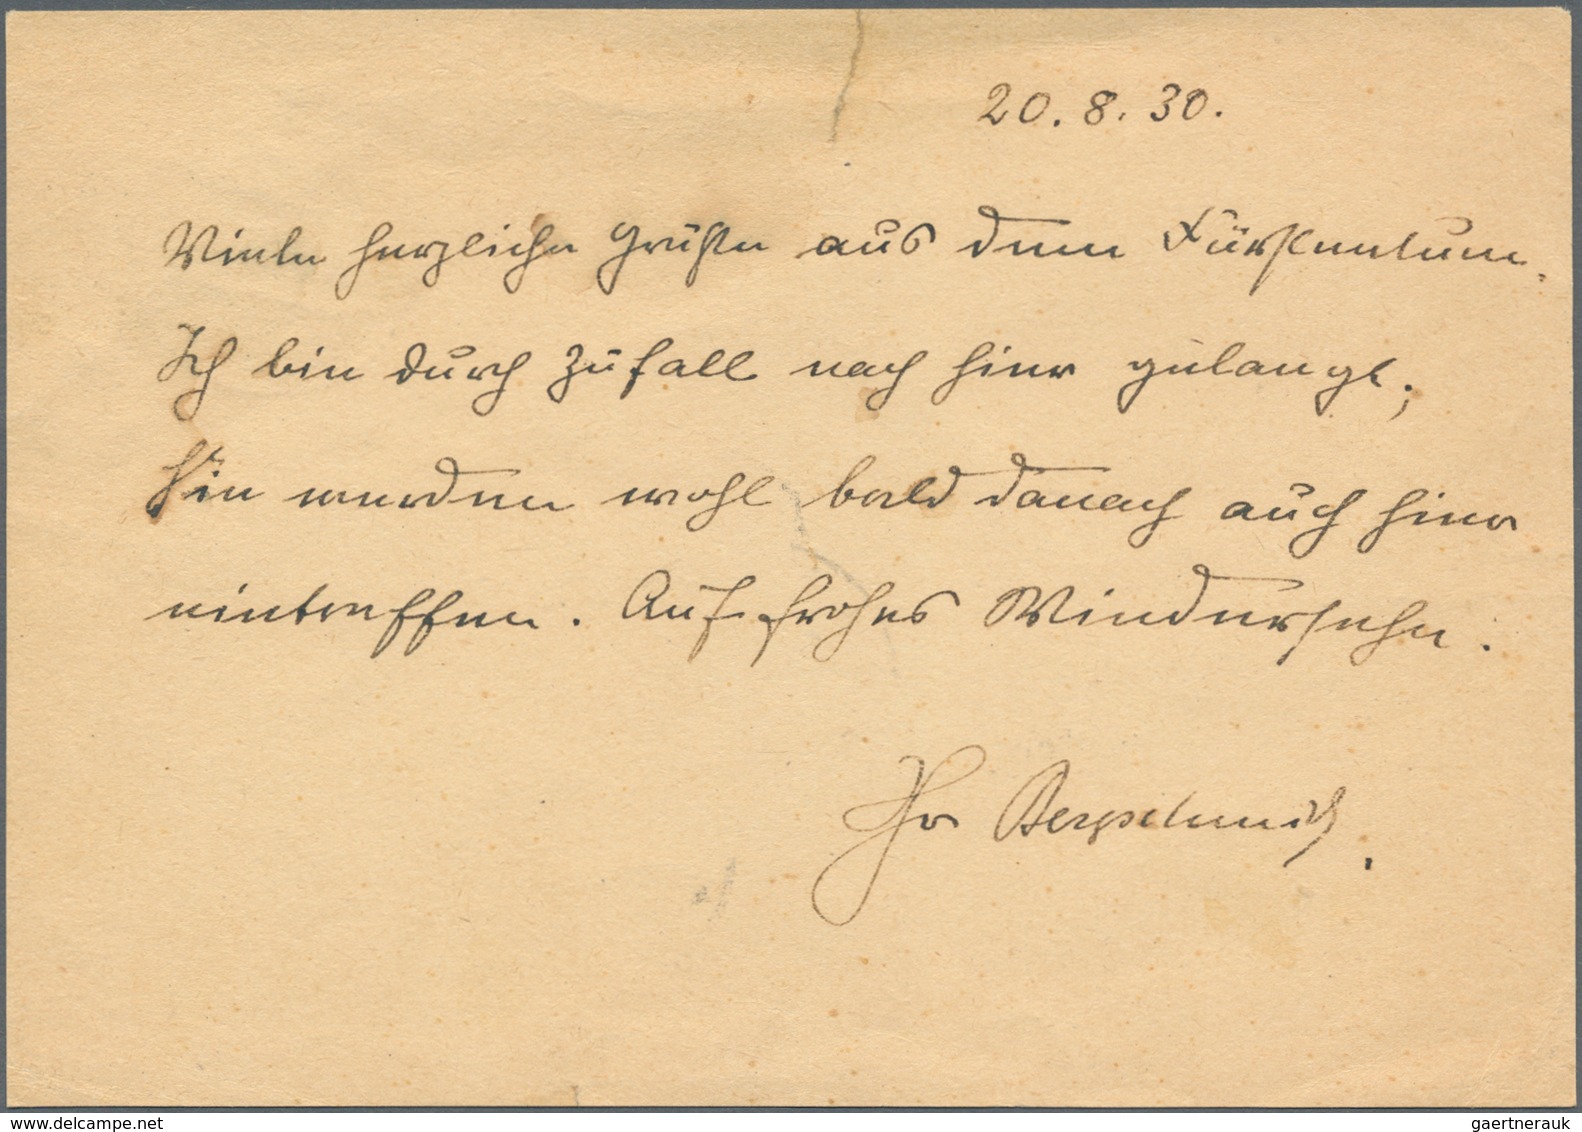 20.8.30.
Viele herzliche Grüße aus dem Fürstentum.
Ich bin durch Zufall nach hier gelangt;
Sie werden wohl bald danach auch hier
eintreffen. Auf frohes Wiedersehn.
Ihr
delcampe.net
gaertnerauk